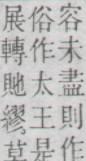 容未盡則作
俗作太王是
展轉貤繆草